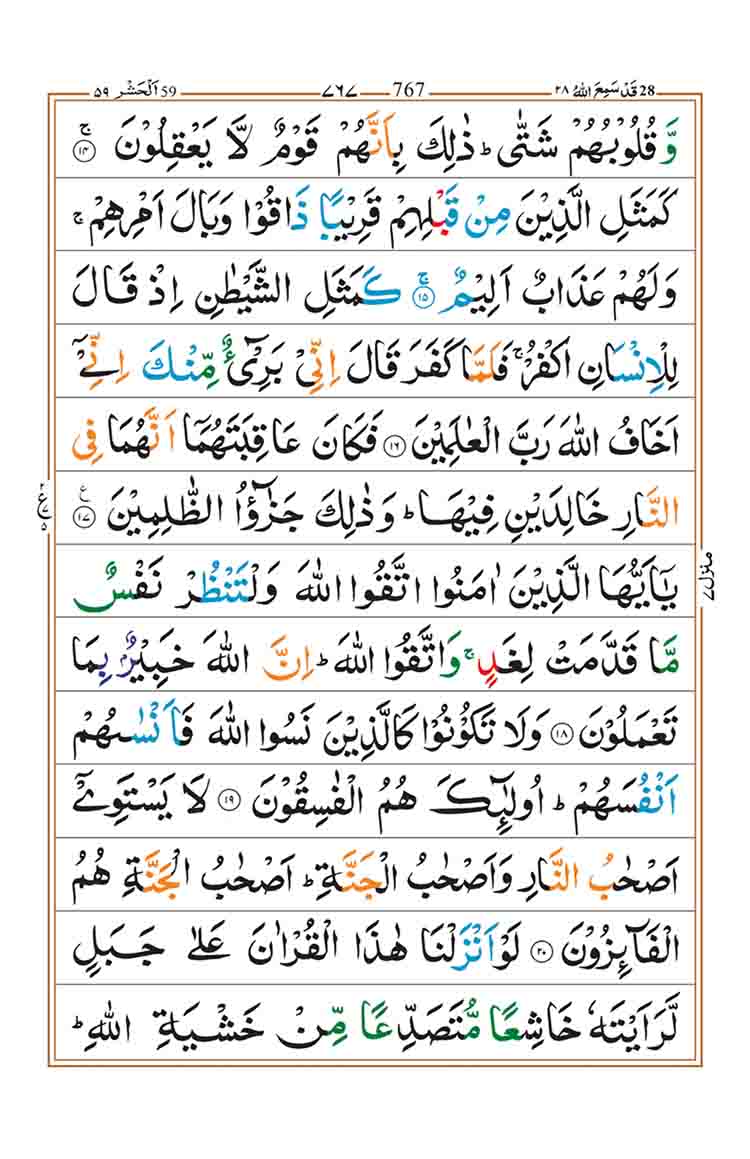 28 قَدْ سَمِعَ اللهُ ٢٨ 767 ٧٦٧ 59 اَلْحَشْر ٥٩
وَّ قُلُوْبُهُمْ شَتّٰى ؕ ذٰلِكَ بِاَنَّهُمْ قَوْمٌ لَّا يَعْقِلُوْنَ ۚ ۝١٤
كَمَثَلِ الَّذِيْنَ مِنْ قَبْلِهِمْ قَرِيْبًا ذَاقُوْا وَبَالَ اَمْرِهِمْ ۚ
وَلَهُمْ عَذَابٌ اَلِيْمٌ ۚ ۝١٥ كَمَثَلِ الشَّيْطٰنِ اِذْ قَالَ
لِلْاِنْسَانِ اكْفُرْ ۚ فَلَمَّا كَفَرَ قَالَ اِنِّيْ بَرِيْٓءٌ مِّنْكَ اِنِّيْٓ
اَخَافُ اللهَ رَبَّ الْعٰلَمِيْنَ ۝١٦ فَكَانَ عَاقِبَتَهُمَاۤ اَنَّهُمَا فِي
النَّارِ خَالِدَيْنِ فِيْهَا ؕ وَذٰلِكَ جَزٰٓؤُا الظّٰلِمِيْنَ ۝١٧ ع
يٰۤاَيُّهَا الَّذِيْنَ اٰمَنُوا اتَّقُوا اللهَ وَلْتَنْظُرْ نَفْسٌ
مَّا قَدَّمَتْ لِغَدٍ ۚ وَاتَّقُوا اللهَ ؕ اِنَّ اللهَ خَبِيْرٌۢ بِمَا
تَعْمَلُوْنَ ۝١٨ وَلَا تَكُوْنُوْا كَالَّذِيْنَ نَسُوا اللهَ فَاَنْسٰىهُمْ
اَنْفُسَهُمْ ؕ اُولٰٓئِكَ هُمُ الْفٰسِقُوْنَ ۝١٩ لَا يَسْتَوِيْٓ
اَصْحٰبُ النَّارِ وَاَصْحٰبُ الْجَنَّةِ ؕ اَصْحٰبُ الْجَنَّةِ هُمُ
الْفَآئِزُوْنَ ۝٢٠ لَوْ اَنْزَلْنَا هٰذَا الْقُرْاٰنَ عَلٰى جَبَلٍ
لَّرَاَيْتَهٗ خَاشِعًا مُّتَصَدِّعًا مِّنْ خَشْيَةِ اللهِ ؕ
منزل ٧